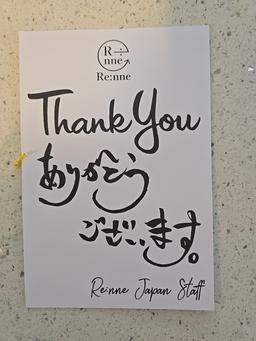 R
nne
Re:nne
Thank You
ありがとう
ございます。
Re:nne Japan Staff